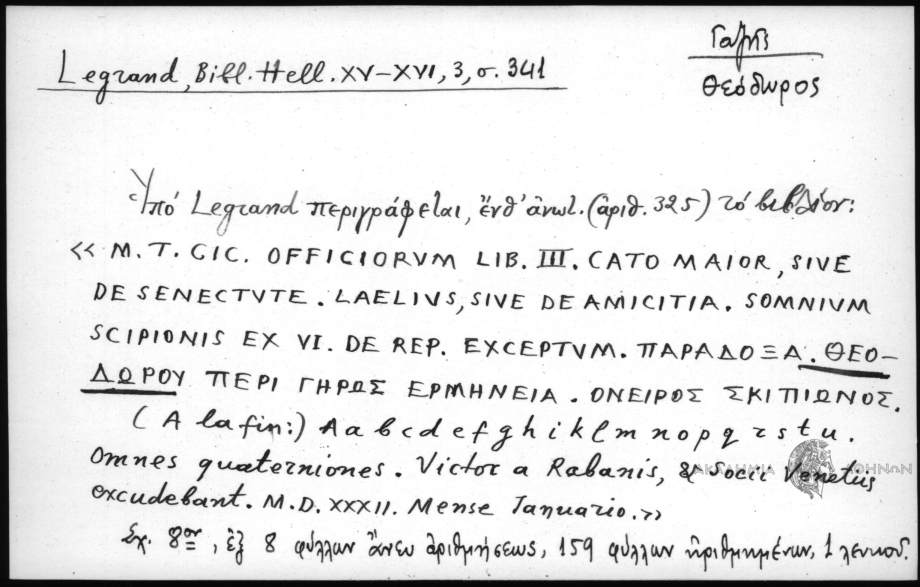 Γαζῆς
Legrand, Bibl. Hell. XV–XVI, 3, σ. 341
Θεόδωρος
Ὑπό Legrand περιγράφεται, ἔνθ' ἀνωτ. (ἀριθ. 325) τό βιβλίον:
« M. T. CIC. OFFICIORVM LIB. III. CATO MAIOR, SIVE
DE SENECTVTE. LAELIVS, SIVE DE AMICITIA. SOMNIVM
SCIPIONIS EX VI. DE REP. EXCEPTVM. ΠΑΡΑΔΟΞΑ. ΘΕΟ-
ΔΩΡΟΥ ΠΕΡΙ ΓΗΡΩΣ ΕΡΜΗΝΕΙΑ. ΟΝΕΙΡΟΣ ΣΚΙΠΙΩΝΟΣ.
(A la fin:) A a b c d e f g h i k l m n o p q r s t u.
Omnes quaterniones. Victor a Rabanis, & Socii Venetiis
ΑΚΑΔΗΜΙΑ ΑΘΗΝΩΝ
excudebant. M. D. XXXII. Mense Ianuario.»
Σχ. 8ον, ἐξ 8 φύλλων ἄνευ ἀριθμήσεως, 159 φύλλων ἠριθμημένων, 1 λευκοῦ.